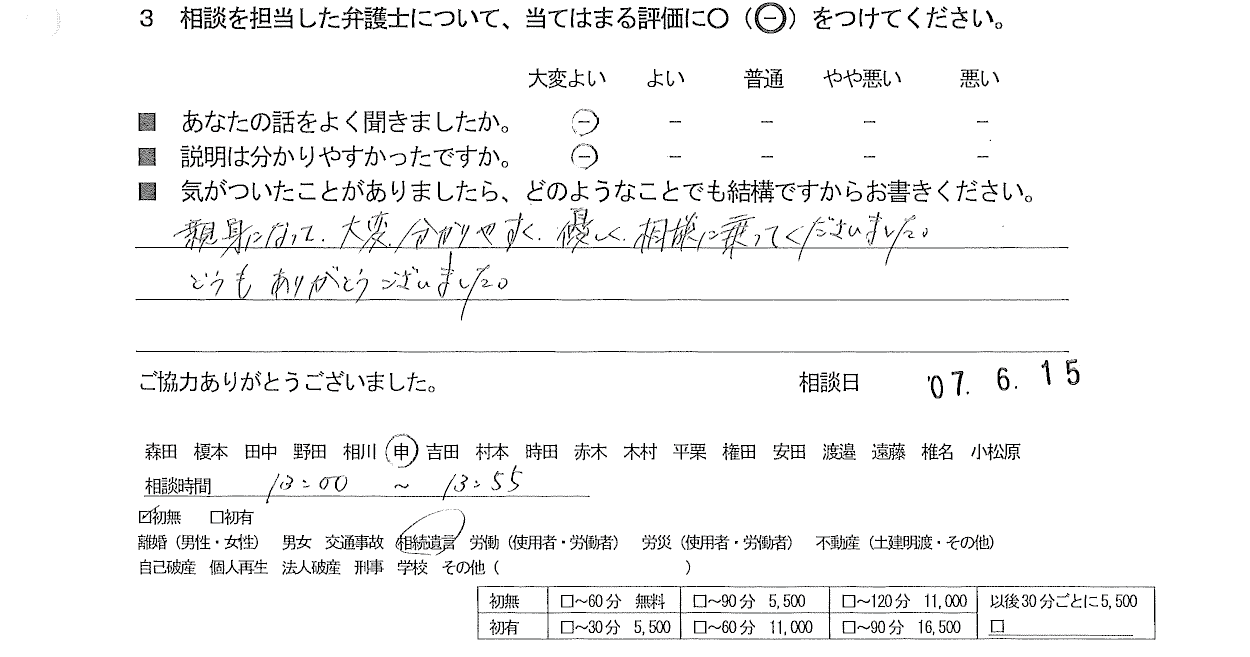 3 相談を担当した弁護士について、当てはまる評価に〇(㊀)をつけてください。
大変よい よい 普通 やや悪い 悪い
■ あなたの話をよく聞きましたか。 ㊀ − − − −
■ 説明は分かりやすかったですか。 ㊀ − − − −
■ 気がついたことがありましたら、どのようなことでも結構ですからお書きください。
親身になって、大変、分かりやすく、優しく、相談に乗ってくださいました。
どうもありがとうございました。
ご協力ありがとうございました。 相談日 '07. 6. 15
森田 榎本 田中 野田 相川 申 吉田 村本 時田 赤木 木村 平栗 権田 安田 渡邉 遠藤 椎名 小松原
相談時間 13:00 ~ 13:55
☑初無 □初有
離婚(男性・女性) 男女 交通事故 相続遺言 労働(使用者・労働者) 労災(使用者・労働者) 不動産(土建明渡・その他)
自己破産 個人再生 法人破産 刑事 学校 その他( )
初無 □~60分 無料 □~90分 5,500 □~120分 11,000 以後30分ごとに5,500
初有 □~30分 5,500 □~60分 11,000 □~90分 16,500 □